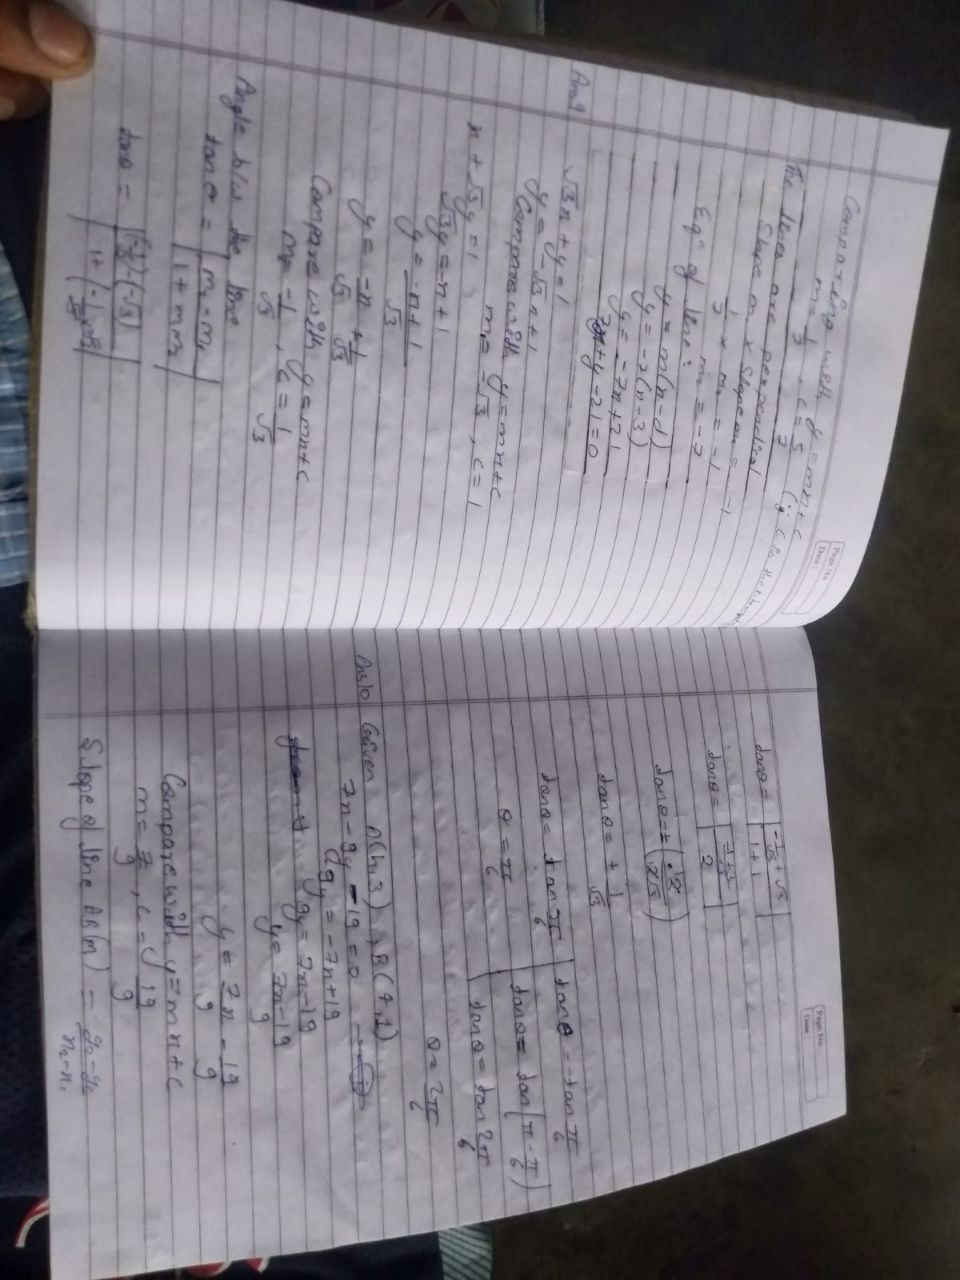 Page No.
Date:
Comparing with y = mx + c
m = 1/7 , c = 5/7
The lines are perpendicul
Slope m × Slope m = -1
1/7 × m2 = -1
m2 = -7
Eqn of line:
y = m(x-d)
y = -7(x-3)
y = -7x+21
7x+y-21=0
Ans9
√3x + y = 1
y = -√3x+1
Compare with y=mx+c
m1 = -√3 , c=1
x + √3y = 1
√3y = -x+1
y = -x+1/√3
y = -x/√3 + 1/√3
Compare with y=mx+c
m2 = -1/√3 , c = 1/√3
Angle b/w the line
tanθ = |m2-m1/1+mm2|
tanθ = |(-1/√3)-(-√3)/1+(-1/√3×-√3)|
Page No.
Date:
tanθ = |-1/√3+√3/1+1|
tanθ = ± 1/√3
tanθ = tan π/6
θ = π/6
tanθ = -tan π/6
tanθ = tan(π-π/6)
Ans10 Given A(h,3), B(4,1)
7x-9y-19=0
-9y=-7x+19
9y=7x-19
y=7x-19/9
y=7x/9-19/9
Compare with y=mx+c
m=7/9, c=-19/9
Slope of line AB(m) =